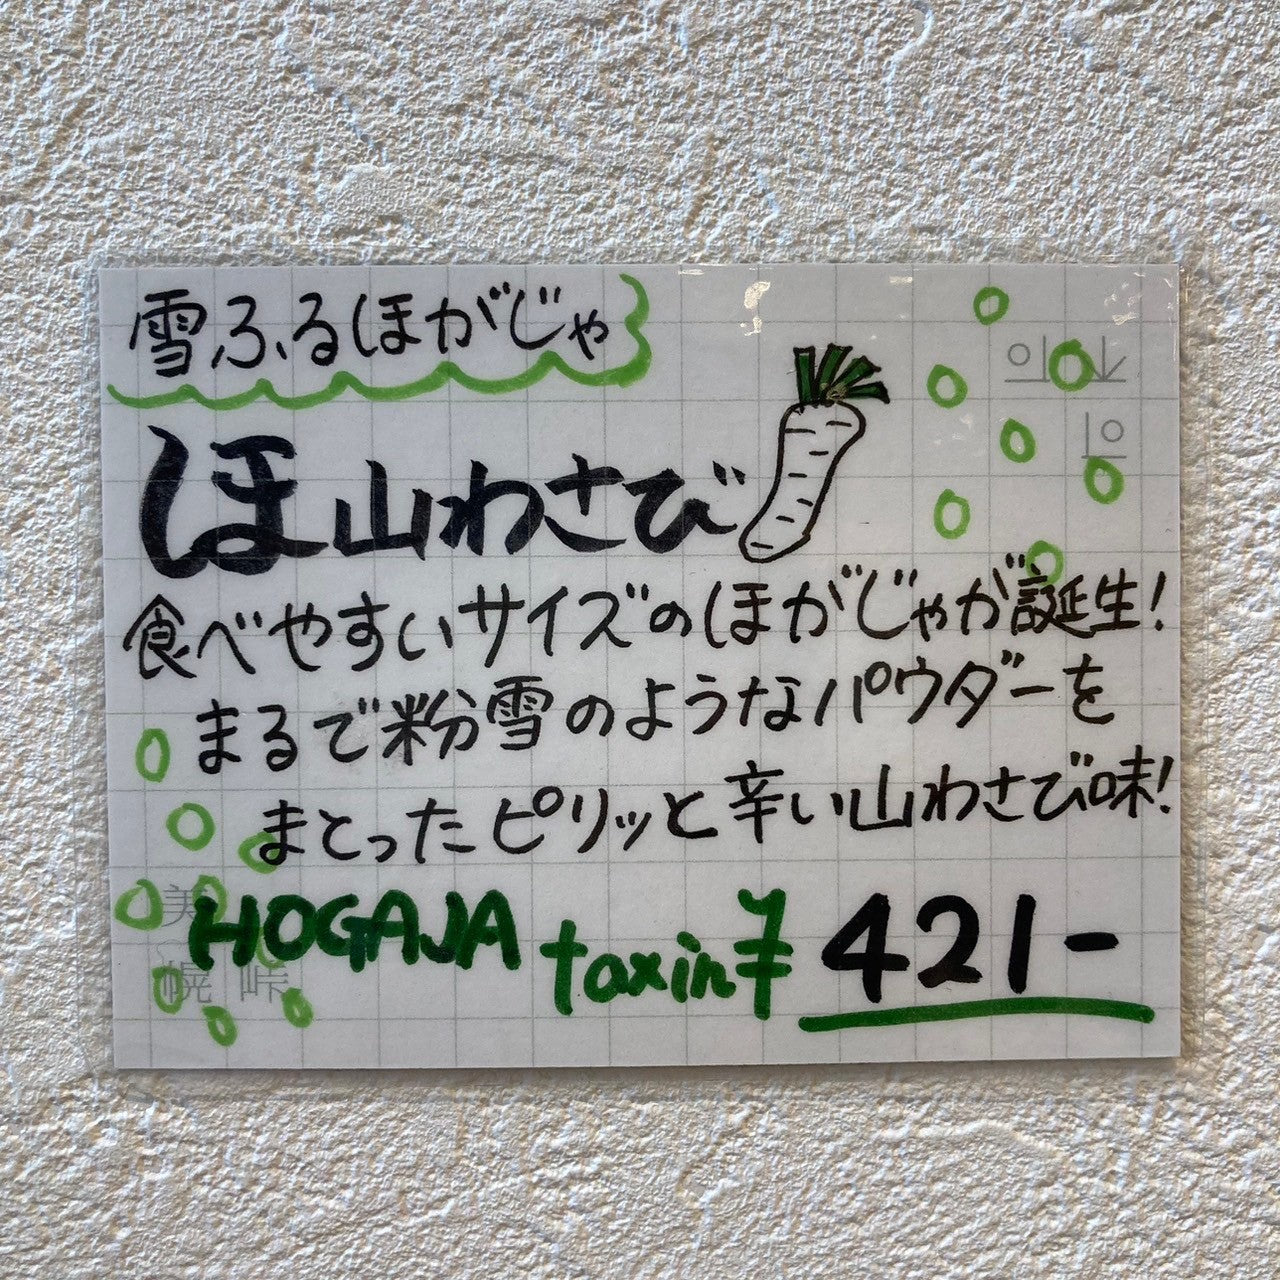 雪ふるほがじゃ
ほ山わさび
食べやすいサイズのほがじゃが誕生!
まるで粉雪のようなパウダーを
まとったピリッと辛い山わさび味!
HOGAJA taxin ¥421-
美
幌 峠